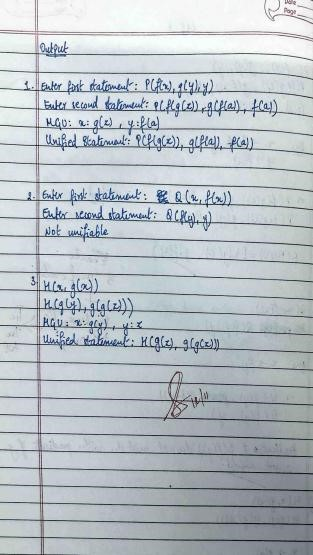 Date
Page
Output
1. Enter first statement: P(f(x), g(y), y)
Enter second statement: P(f(g(z)), g(f(a)), f(a))
MGU: x: g(z), y: f(a)
Unified Statement: P(f(g(z)), g(f(a)), f(a))
2. Enter first statement: Q(x, f(x))
Enter second statement: Q(f(y), y)
Not unifiable
3. H(x, g(x))
H(g(y), g(g(z)))
MGU: x: g(y), y: z
Unified statement: H(g(z), g(g(z)))